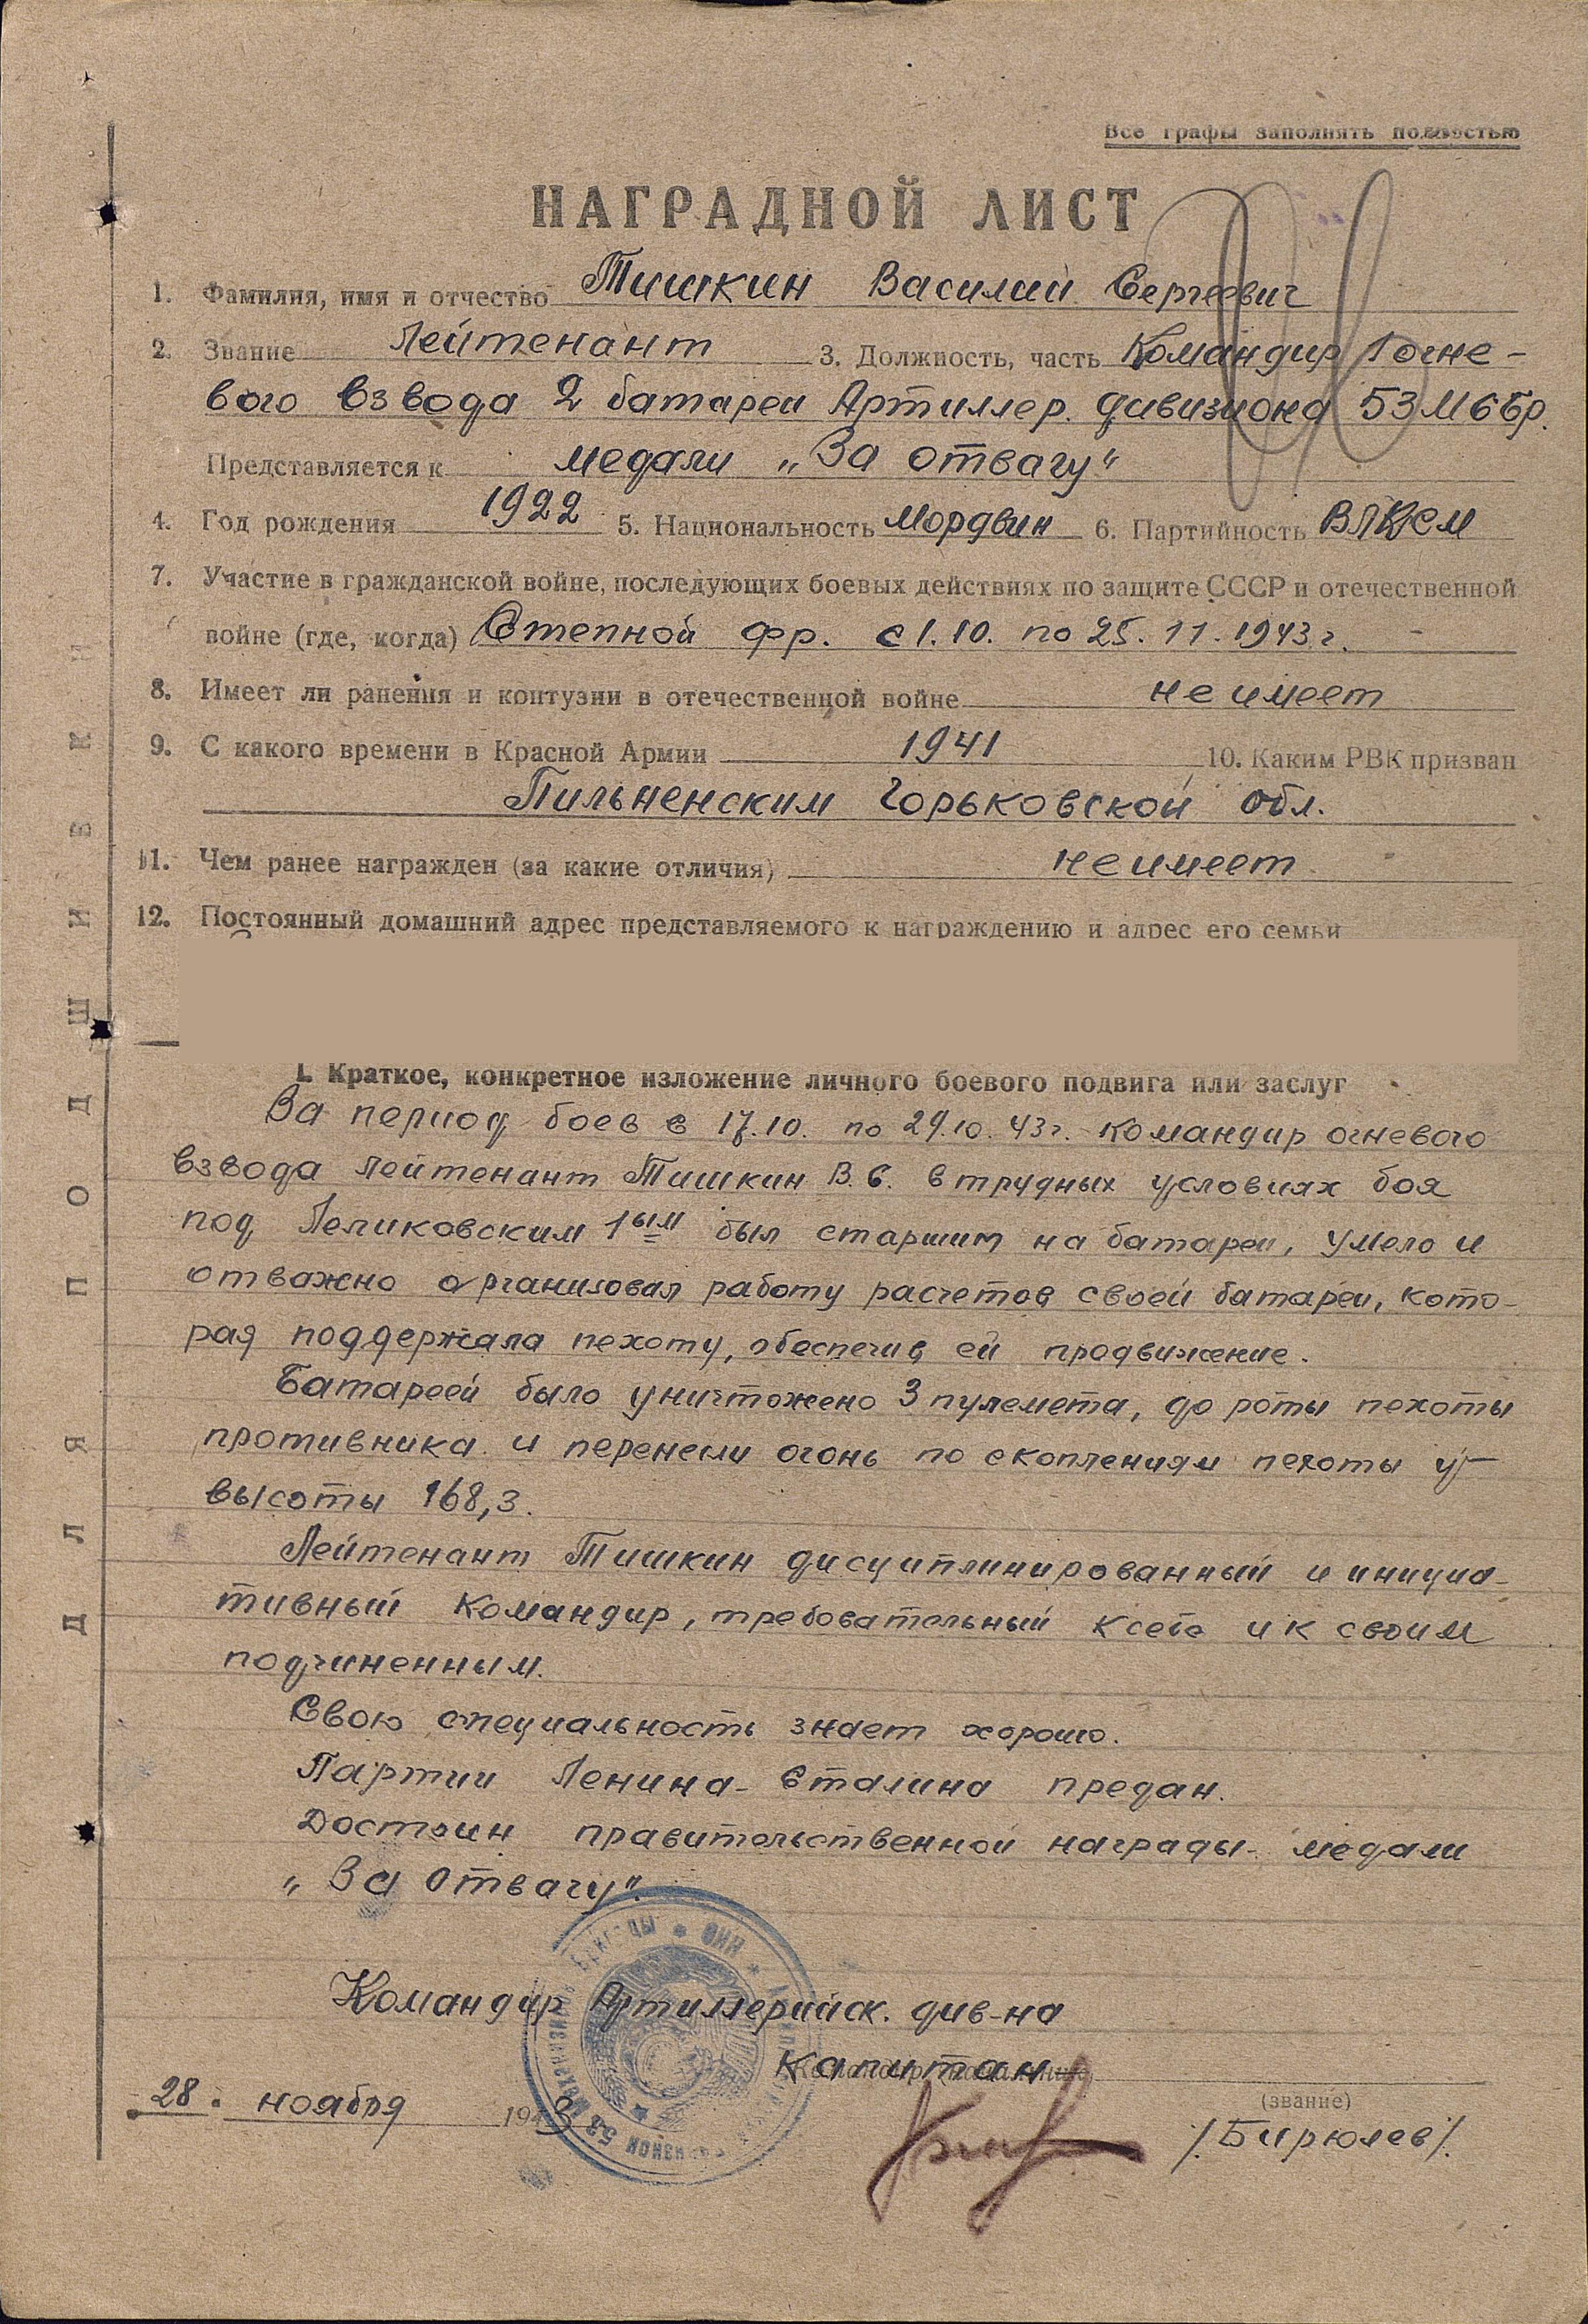 Все графы заполнять полностью
НАГРАДНОЙ ЛИСТ
1. Фамилия, имя и отчество Тишкин Василий Сергеевич
2. Звание Лейтенант 3. Должность, часть Командир 1 огне-
вого взвода 2 батареи Артиллер. дивизиона 53 МббР.
Представляется к медали „За отвагу“
4. Год рождения 1922 5. Национальность Мордвин 6. Партийность ВЛКСМ
7. Участие в гражданской войне, последующих боевых действиях по защите СССР и отечественной
войне (где, когда) Степной фр. с 1.10. по 25.11.1943г.
8. Имеет ли ранения и контузии в отечественной войне не имеет
9. С какого времени в Красной Армии 1941 10. Каким РВК призван
Пильненским Горьковской обл.
11. Чем ранее награжден (за какие отличия) не имеет
12. Постоянный домашний адрес представляемого к награждению и адрес его семьи
I. Краткое, конкретное изложение личного боевого подвига или заслуг
За период боев с 17.10. по 29.10.43г. командир огневого
взвода лейтенант Тишкин В.С. в трудных условиях боя
под Леликовским 1ым был старшим на батареи, умело и
отважно организовал работу расчетов своей батареи, кото-
рая поддержала пехоту, обеспечив ей продвижение.
Батареей было уничтожено 3 пулемета, до роты пехоты
противника и перенесли огонь по скоплениям пехоты у
высоты 168,3.
Лейтенант Тишкин дисциплинированный и инициа-
тивный командир, требовательный к себе и к своим
подчиненным.
Свою специальность знает хорошо.
Партии Ленина-Сталина предан.
Достоин правительственной награды- медали
„За отвагу“.
Командир Артиллерийск. див-на
Капитан
(звание)
28. ноября 1943
/Бирюлев/.
ДЛЯ ПОДШИВКИ